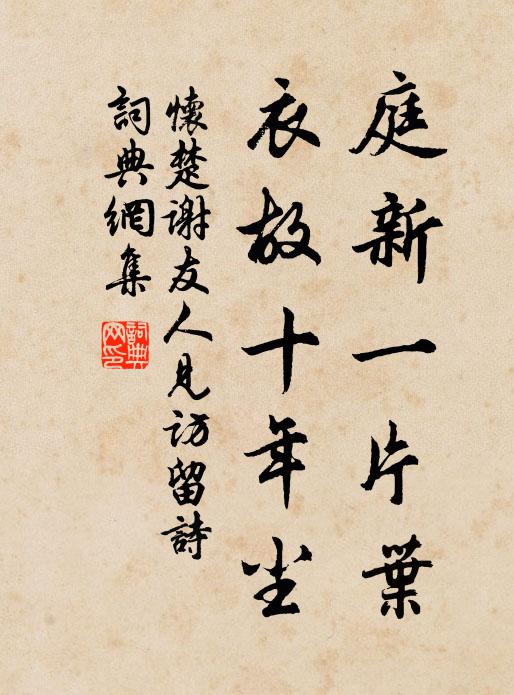 庭新一片葉
衣故十年尘
懷楚謝友人見訪留詩
詞典網集
詞典网印